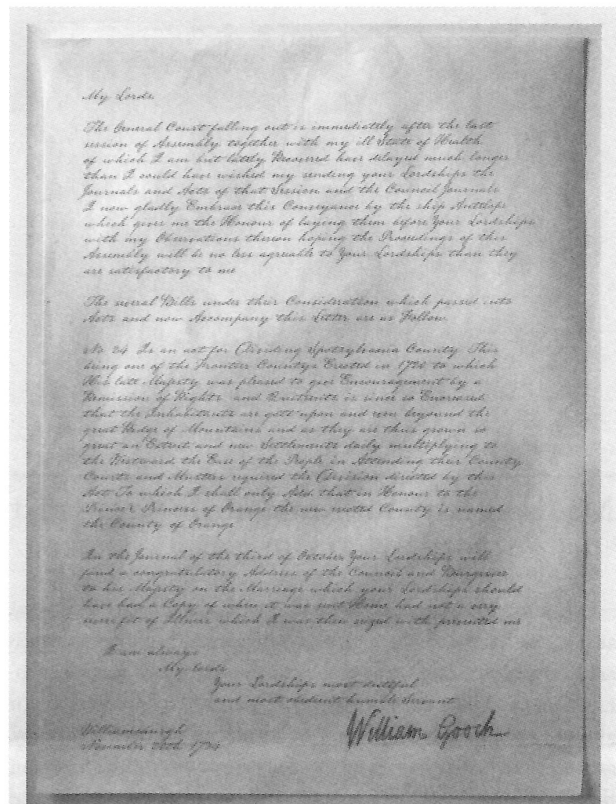 My Lords
The General Court falling out is immediately after the last
session of Assembly together with my ill State of Health
of which I am but lately Recovered have delayed much longer
than I could have wished my sending your Lordships the
Journals and Acts of that Session and the Council Journals
I now gladly Embrace this Conveyance by the ship Anttelope
which gives me the Honour of laying them before Your Lordships
with my Observations thereon hoping the Proceedings of this
Assembly will be no less agreable to Your Lordships than they
are satisfactory to me
The several Bills under their Consideration which passed into
Acts and now Accompany this Letter are as Follow
No 24 Is an act for Dividing Spotsylvania County This
being one of the Frontier Countys Erected in 1720 to which
His late Majesty was pleased to give Encouragement by a
Remission of Rights and Quitrents is since so Encreased
that the Inhabitants are gott upon and even beyound the
great Ridge of Mountains and as they are thus grown so
great an Extent and new Settlements daily multiplying to
the Westward the Ease of the People in Attending their County
Courts and Musters required the Division directed by this
Act To which I shall only Add that in Honour to the
Prince's Princess of Orange the new erected County is named
the County of Orange
In the Journal of the third of October Your Lordships will
find a congratulatory Address of the Council and Burgesses
to his Majesty on the Marriage which your Lordships should
have had a Copy of when it was sent Home had not a very
severe fit of Illness which I was then seized with prevented me
I am always
My lords
Your Lordships most dutiful
and most obedient humble Servant
Williamsburgh
November 20th 1734
William Gooch